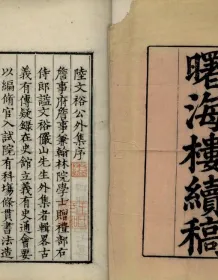 曙海樓續稿
陸文裕公外集序
詹事府詹事兼翰林院學士贈禮部右
侍郎謚文裕儼山先生外集者輯畧古
義有傳疑錄在史館立義有史通會要
以編脩官入試院有科場條貫書法造